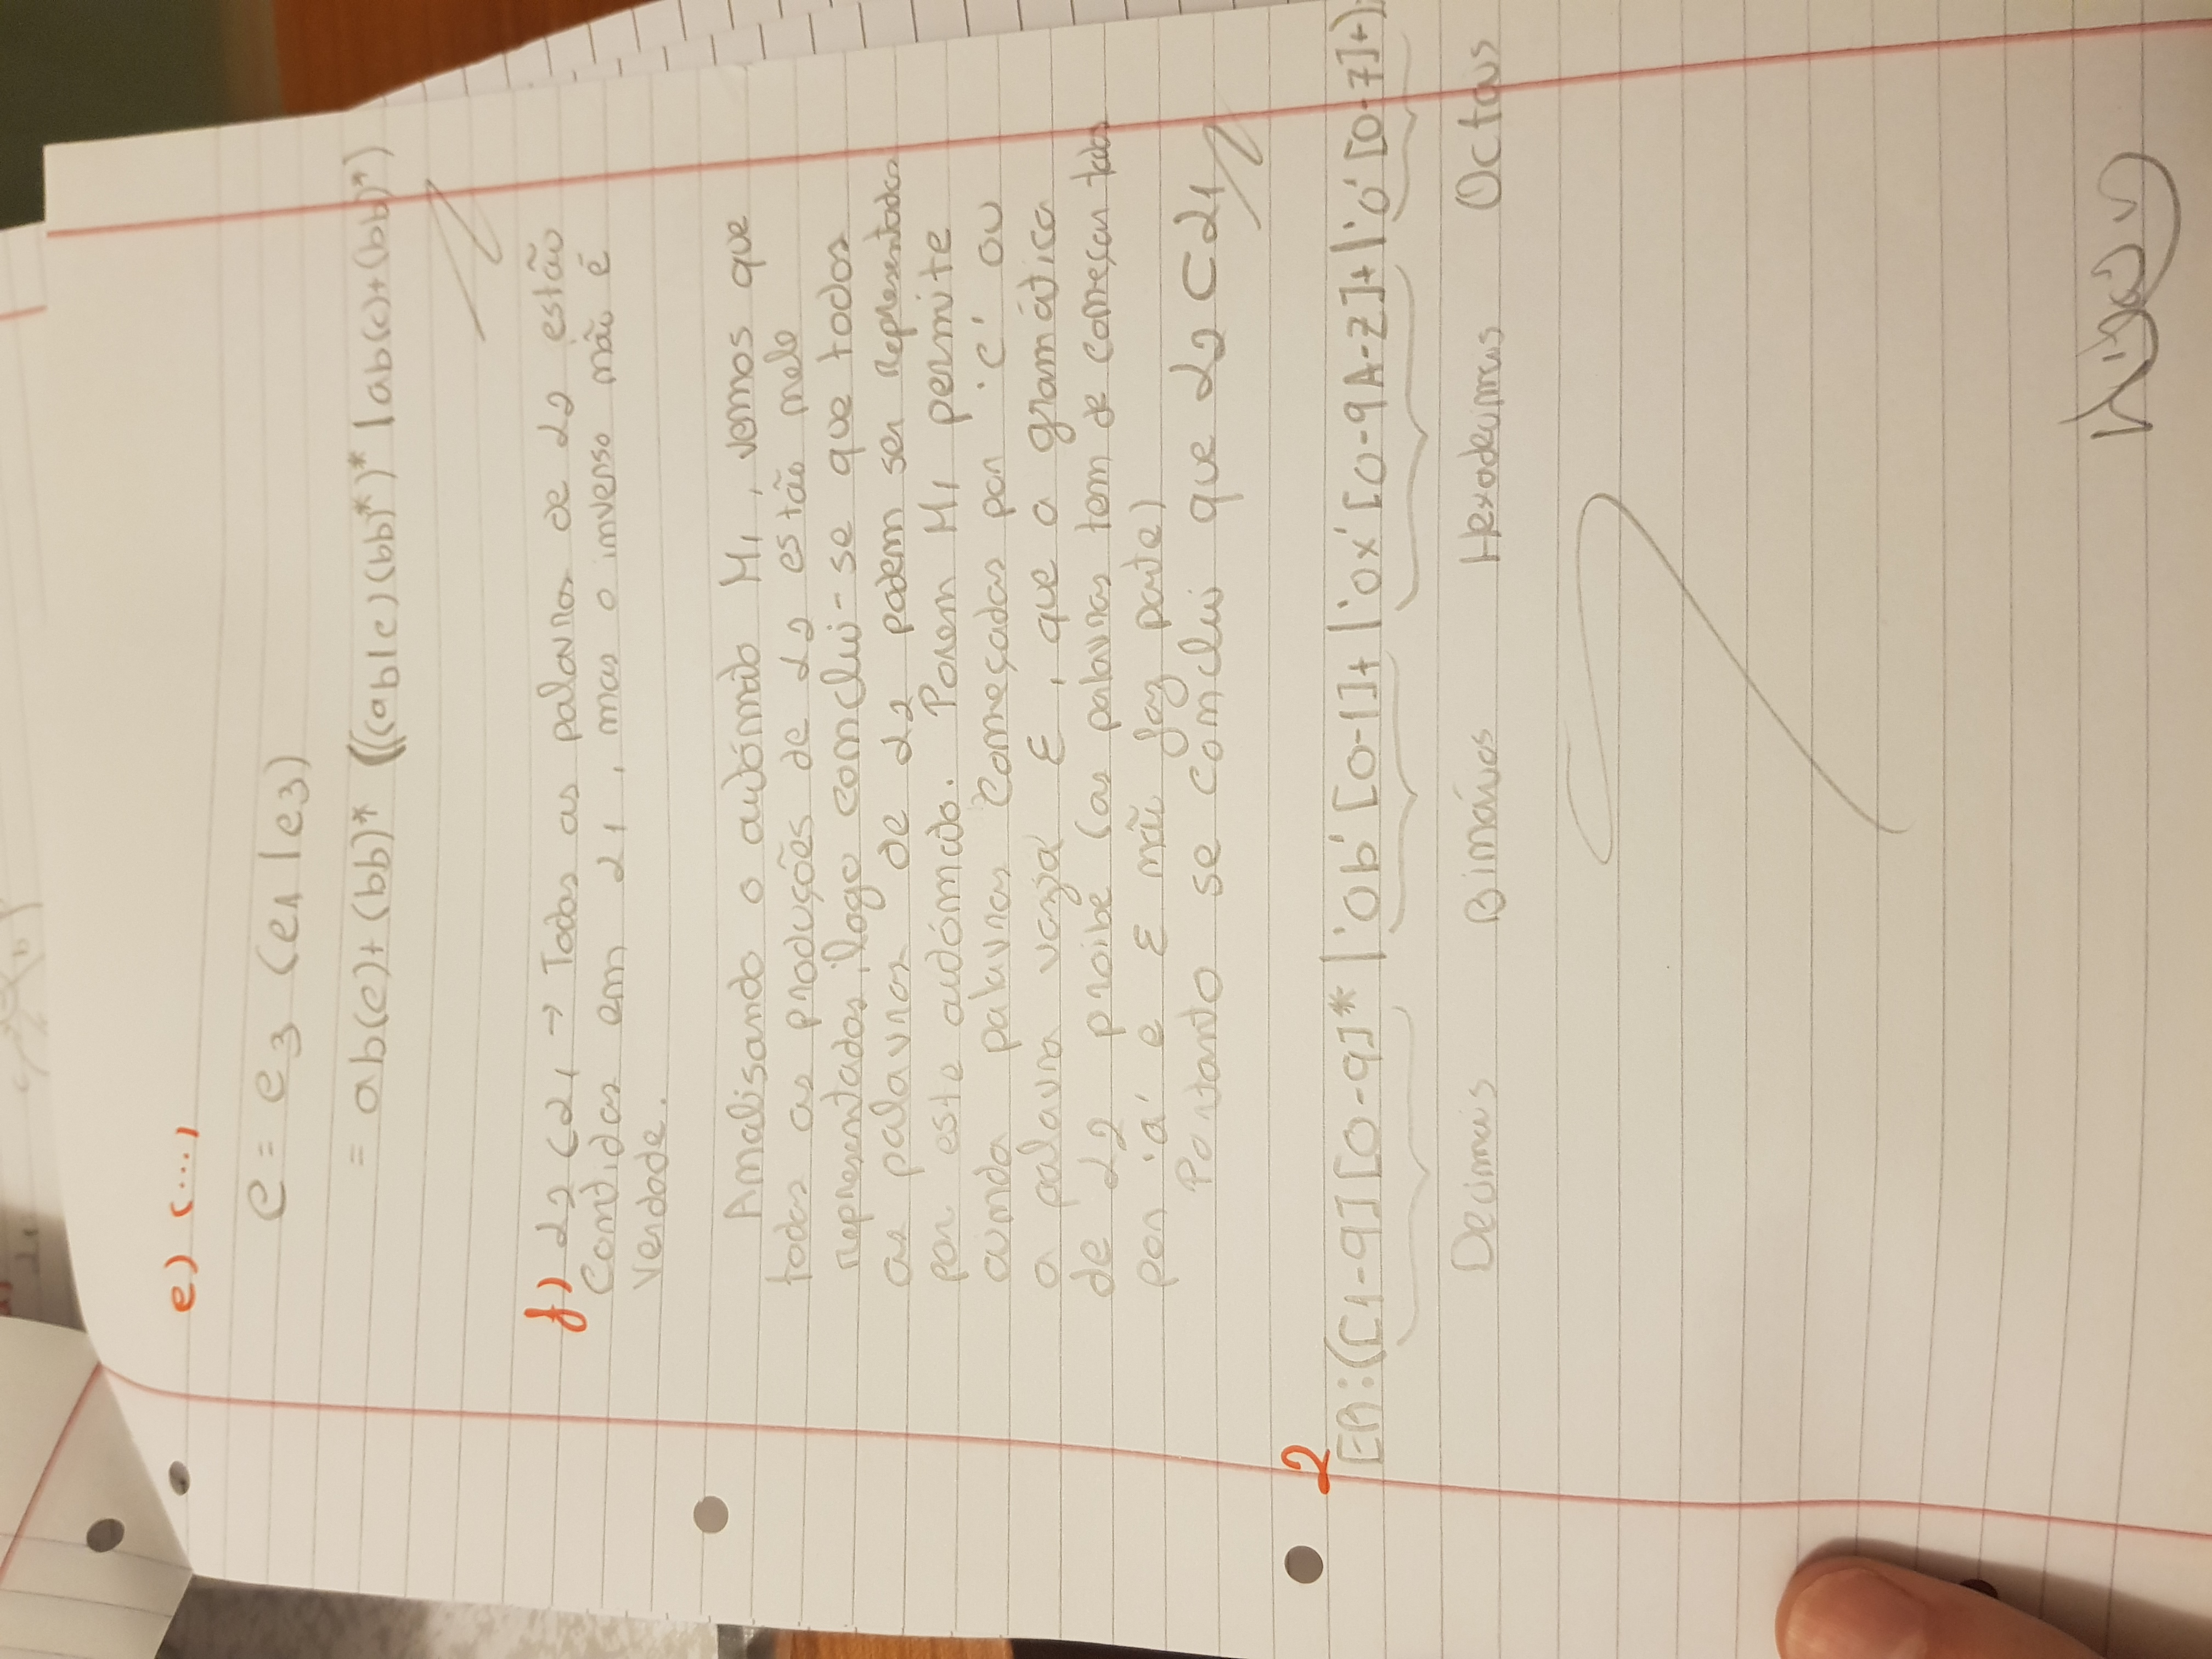 e) (...)
e = e3 (e1 | e3)
= ab(c)+ (bb)* (((ab|c)(bb)*)* | ab(c)+(bb)*)
f) L2 C L1 → Todas as palavras de L2 estão
Contidas em L1, mas o inverso não é
Verdade.
Analisando o autómato M1, vemos que
todas as produções de L2 estão nele
representadas, logo conclui-se que todas
as palavras de L2 podem ser representadas
por este autómato. Porem M1 permite
ainda palavras começadas por 'c' ou
a palavra vazia ε, que a gramática
de L2 proibe (as palavras tem de começar todas
por 'a' e ε não faz parte)
Portanto se conclui que L2 ⊂ L1
2
ER: ([1-9][0-9]* | '0b' [0-1]+ | '0x' [0-9A-Z]+ | '0' [0-7]+)
Decimais Binários Hexadecimais Octais